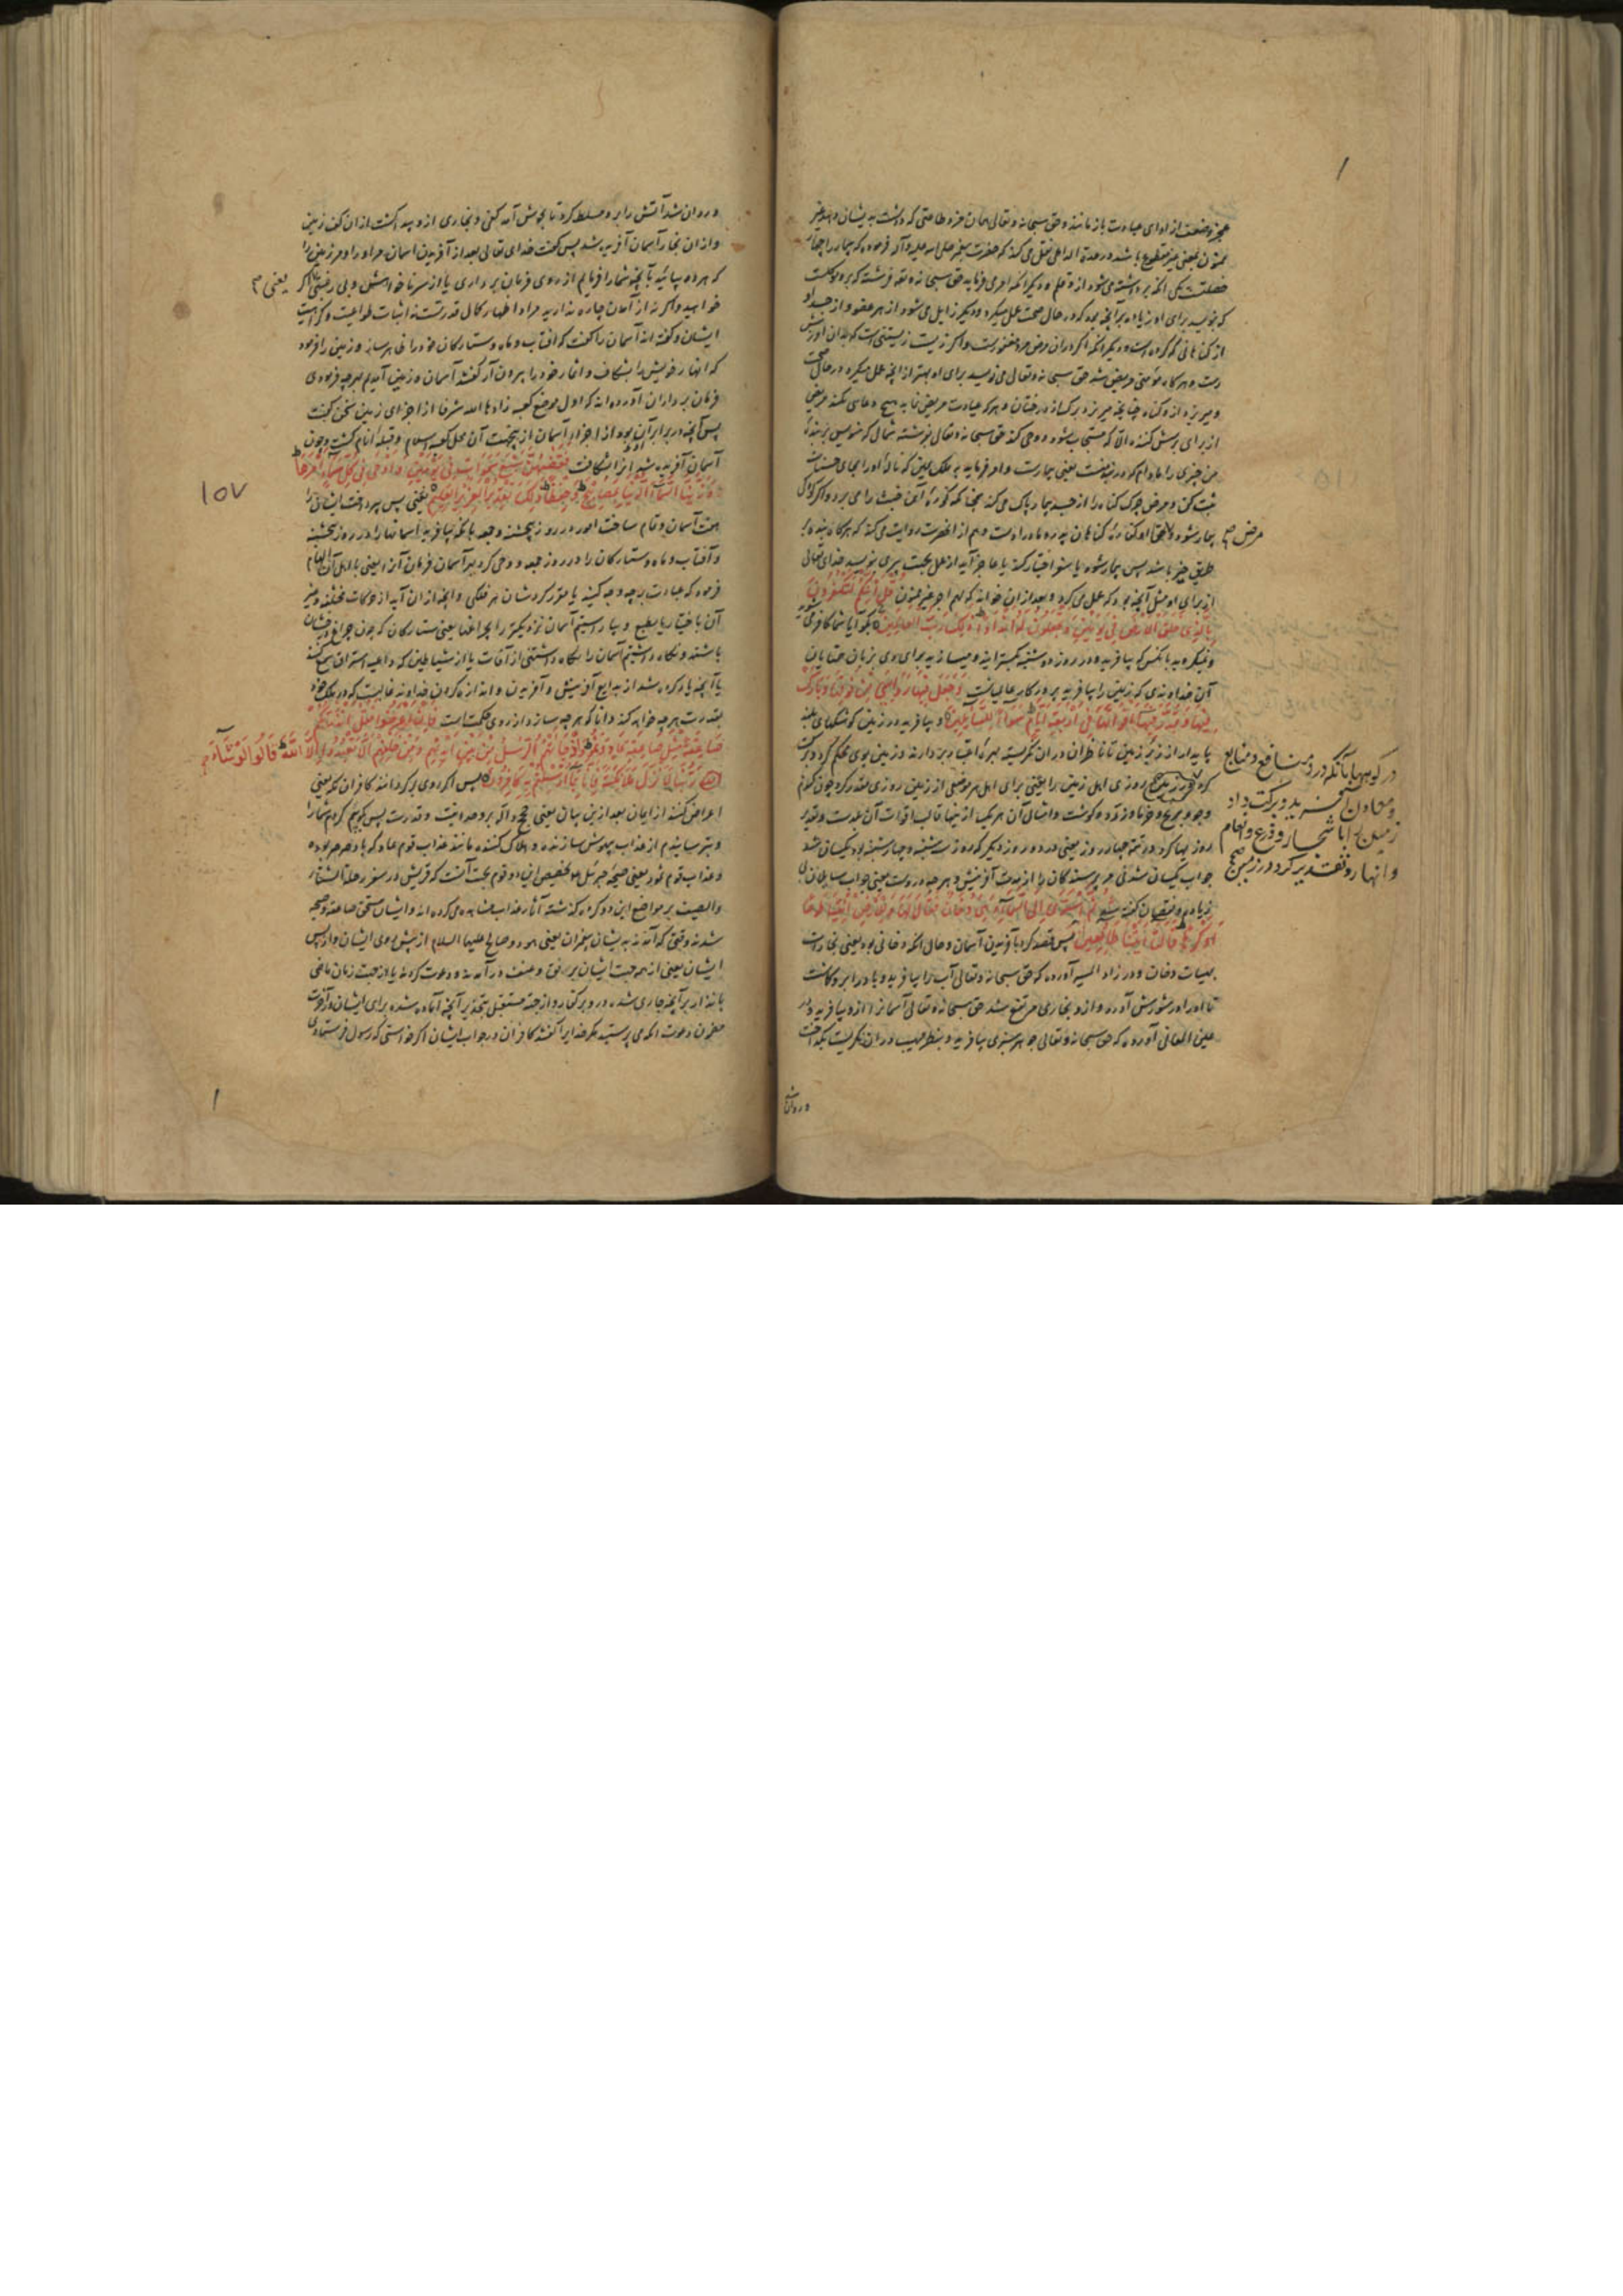 عجز و ضعف از ادای عبادت باز مانند و حق سبحانه و تعالی همان مزد طاعتی که داشت بدیشان دهد غیر
ممنون یعنی غیر مقطوع باشد در عدة الداعی نقل می کند که حضرت پیغمبر صلی الله علیه و آله فرموده که بیمار را چهار
خصلتست یکی آنکه برداشته می شود از و قلم و دیگر آنکه امر می فرماید حق سبحانه و تعالی فرشته که برو موکلست
که بنویسد برای او زیاده بر آنچه بود که در حال صحت عمل میکرد و دیگر زایل می شود از هر عضو از جسد او
از گناهانی که کرده است و دیگر آنکه اگر در آن مرض مرد مغفورست و اگر زیست
و هر گاه مؤمنی مریض شد حق سبحانه و تعالی می نویسد برای او بهتر از آنچه عمل میکرد در حال صحت
و میریزد از و گناه چنانچه میریزد برگ از درختان و هر که عیادت مریض نماید هیچ دعا نمی کند مریض
از برای پرسش کننده الا که مستجاب شود و وحی کند حق سبحانه و تعالی فرشته شمال که منویس بر بنده
من چیزی را مادام که در بند منست یعنی بیمارست و امر فرماید به ملک یمین که ناله او را بجای حسنات
ثبت کن و مرض چرک گناه را از جسد بیمار پاک می کند همچنانکه کوره آهن خبث را می برد و اگر کودکی
بیمار شود مرض او کفاره گناهان پدر و مادر اوست و هم از آنحضرت روایت می کند که هر گاه بنده بر
مرض
طریق خیر باشد پس بیمار شود یا سفر اختیار کند یا عاجز آید از عمل بجهت پیری بنویسد خدای تعالی
از برای او مثل آنچه بود که عمل می کرد و بعد از آن خواند که لهم اجر غیر ممنون قُلْ أَئِنَّكُمْ لَتَكْفُرُونَ
بِالَّذِي خَلَقَ الْأَرْضَ فِي يَوْمَيْنِ وَتَجْعَلُونَ لَهُ أَنْدَادًا ذَلِكَ رَبُّ الْعَالَمِينَ بگو آیا شما کافر می شوید
و نمیگروید بآنکس که بیافرید در دو روز دوشنبه یکشنبه و میسازید برای وی بزبان همتایان
آن خداوندی که زمین را بیافرید پروردگار عالمیانست وَجَعَلَ فِيهَا رَوَاسِيَ مِنْ فَوْقِهَا وَبَارَكَ
فِيهَا وَقَدَّرَ فِيهَا أَقْوَاتَهَا فِي أَرْبَعَةِ أَيَّامٍ سَوَاءً لِلسَّائِلِينَ و بیافرید در زمین کوههای بلند
پایدار از زبر زمین تا ناظران در آن نگریسته بهره اعتبار بردارند و زمین بوی محکم گردد و برکت
در کوهها بآنکه در و منافع و منابع
و معادن آفرید و برکت داد
زمین را باشجار و زرع و انعام
و انهار و تقدیر کرد در زمین صح
کرد در زمین روزی اهل زمین را یعنی برای اهل هر موضعی از زمین روزی مقدر کرد چون گندم
و جو و برنج و خرما و ذره و گوشت و امثال آن هر یک از اینها غالب اقوات آن بلدست و تقدیر
روزیها کرد در تتمه چهار روز یعنی در دو روز دیگر که روز سه شنبه و چهارشنبه بود یکسان شد
جواب یکسان شدنی مر پرسندگان را از مدت آفرینش و هر چه دروست یعنی جواب سایلان بی
زیاده و نقصان گفته شد ثُمَّ اسْتَوَى إِلَى السَّمَاءِ وَهِيَ دُخَانٌ فَقَالَ لَهَا وَلِلْأَرْضِ ائْتِيَا طَوْعًا
أَوْ كَرْهًا قَالَتَا أَتَيْنَا طَائِعِينَ پس قصد کرد بآفریدن آسمان و حال آنکه دخانی بود یعنی بخارات
بهیات دخان و در زاد المسیر آورده که حق سبحانه و تعالی آب را بیافرید و باد را برو گماشت
تا او را در شورش آورد و از و بخاری مرتفع شد حق سبحانه و تعالی آسمانرا از و بیافرید و در
عین المعانی آورده که حق سبحانه و تعالی جوهر سبزی بیافرید و بنظر هیبت در آن نگریست بگداخت
و روان شد
و روان شد آتش را برو مسلط کرد تا بجوش آمد کفی و بخاری از و پیدا گشت از آن کف زمین
و از آن بخار آسمان آفریده شد پس گفت خدای تعالی بعد از آفریدن آسمان مر او را و مر زمین را
که هر دو بیائید بآنچه شما را فرمایم از روی فرمان برداری یا از سر ناخواهش و بی رغبتی یعنی اگر
خواهید و اگر نه از آمدن چاره ندارید مراد اظهار کمال قدرتست نه اثبات طواعیت و کراهیت
ایشان و گفته اند آسمان را گفت که آفتاب و ماه و ستارگان خود را ظاهر ساز و زمین را فرمود
که انهار خویش را بشکاف و اثمار خود را بیرون آر گفتند آسمان و زمین آمدیم بهر چه فرمودی
فرمان برداران آورده اند که اول موضع کعبه زادها الله شرفا از اجزای زمین سخن گفت
پس آنچه در برابر آن بود از اجزای آسمان ازینجهت آن محل کعبه اسلام و قبله انام گشت و چون
آسمان آفریده شد فَقَضَاهُنَّ سَبْعَ سَمَاوَاتٍ فِي يَوْمَيْنِ وَأَوْحَى فِي كُلِّ سَمَاءٍ أَمْرَهَا
وَزَيَّنَّا السَّمَاءَ الدُّنْيَا بِمَصَابِيحَ وَحِفْظًا ذَلِكَ تَقْدِيرُ الْعَزِيزِ الْعَلِيمِ یعنی پس بپرداخت ایشان را
۱۵۷
هفت آسمان و تمام ساخت امور در روز پنجشنبه و جمعه بآنکه بیافرید آسمانها را در روز پنجشنبه
و آفتاب و ماه و ستارگان را در روز جمعه و وحی کرد بهر آسمان فرمان آنرا یعنی باهل آن الهام
فرمود که عبادت برچه وجه کنید یا مقرر کرد شان هر فلکی و آنچه از آن آید از حرکات مختلفه و غیر
آن باختیار یا بطبع و بیاراستیم آسمان نزدیکتر را بچراغها یعنی ستارگان که چون چراغ درخشان
باشند و نگاه داشتیم آسمان را نگاه داشتنی از آفات یا از شیاطین که داعیه استراق سمع کنند
یا آنچه یاد کرده شد از بدایع آفرینش و آفریدن و اندازه کردن خداوند غالبست که در ملک خود
بقدرت هر چه خواهد کند دانا که هر چه سازد از روی حکمت است فَإِنْ أَعْرَضُوا فَقُلْ أَنْذَرْتُكُمْ
صَاعِقَةً مِثْلَ صَاعِقَةِ عَادٍ وَثَمُودَ إِذْ جَاءَتْهُمُ الرُّسُلُ مِنْ بَيْنِ أَيْدِيهِمْ وَمِنْ خَلْفِهِمْ أَلَّا تَعْبُدُوا إِلَّا اللَّهَ قَالُوا لَوْ شَاءَ
رَبُّنَا لَأَنْزَلَ مَلَائِكَةً فَإِنَّا بِمَا أُرْسِلْتُمْ بِهِ كَافِرُونَ پس اگر روی بگردانند کافران مکه یعنی
اعراض کنند از ایمان بعد ازین بیان یعنی حجج داله بر وحدانیت و قدرت پس بگو بیم کردم شما را
و بترسانیدم از عذاب بیهوش سازنده و هلاک کننده مانند عذاب قوم عاد که باد صرصر بوده
و عذاب قوم ثمود یعنی صیحه جبرئیل و تخصیص این دو قوم بجهت آنست که قریش در سفر رحلة الشتاء
والصیف بر مواضع این دو گروه گذشته آثار عذاب مشاهده می کرده اند و ایشان مستحق صاعقه و صیحه
شدند وقتی که آمدند بدیشان پیغمبران یعنی هود و صالح علیهما السلام از پیش روی ایشان و از پس
ایشان یعنی از همه جهت ایشان برفق و عنف در آمدند و دعوت کردند یا از جهت زمان ماضی
بانذار بر آنچه جاری شده در و بر کفار و از جهة مستقبل بتحذیر آنچه آماده شده برای ایشان در آخرت
دعوت آنکه می پرستید مگر خدایرا گفتند کافران در جواب ایشان اگر خواستی که رسول فرستادی